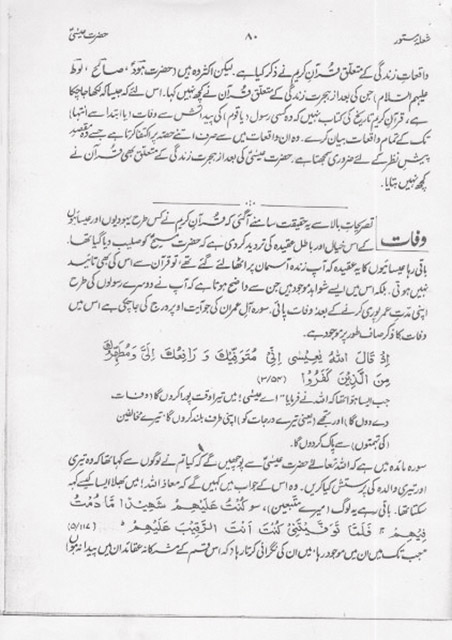 شعلۂ مستور
۸۰
حضرت عیسیٰؑ
واقعاتِ زندگی کے متعلق قرآن کریم نے ذکر کیا ہے۔ لیکن اکثر وہ ہیں (حضرت ہودؑ، صالحؑ، لوطؑ
علیہم السلام) جن کی بعد از ہجرت زندگی کے متعلق قرآن نے کچھ نہیں کہا۔ اس لئے کہ جیسا کہ لکھا جا چکا
ہے، قرآن کریم تاریخ کی کتاب نہیں کہ وہ کسی رسول (یا قوم) کی پیدائش سے وفات (یا ابتدا سے انتہا)
تک کے تمام واقعات بیان کرے۔ وہ ان واقعات میں سے صرف اتنے حصہ پر اکتفا کرتا ہے جسے وہ مقصدِ
پیشِ نظر کے لئے ضروری سمجھتا ہے۔ حضرت عیسیٰؑ کی بعد از ہجرت زندگی کے متعلق بھی قرآن نے
کچھ نہیں بتایا۔
وفات
تصریحاتِ بالا سے یہ حقیقت سامنے آگئی کہ قرآن کریم نے کس طرح یہودیوں اور عیسائیوں
کے اس خیال اور باطل عقیدہ کی تردید کر دی ہے کہ حضرت مسیحؑ کو صلیب دیا گیا تھا۔
باقی رہا عیسائیوں کا یہ عقیدہ کہ آپ زندہ آسمان پر اٹھا لئے گئے تھے تو قرآن سے اس کی بھی تائید
نہیں ہوتی۔ بلکہ اس میں ایسے شواہد موجود ہیں جن سے واضح ہوتا ہے کہ آپ نے دوسرے رسولوں کی طرح
اپنی مدتِ عمر پوری کرنے کے بعد وفات پائی۔ سورہ آلِ عمران کی جو آیت اوپر درج کی جا چکی ہے اس میں
وفات کا ذکر صاف طور پر موجود ہے۔
اِذْ قَالَ اللهُ یٰعِیْسٰی اِنِّیْ مُتَوَفِّیْكَ وَ رَافِعُكَ اِلَیَّ وَمُطَهِّرُكَ
مِنَ الَّذِیْنَ كَفَرُوْا (۳/۵۴)
جب ایسا ہوا تھا کہ اللہ نے فرمایا "اے عیسیٰ! میں تیرا وقت پورا کروں گا (وفات
دے دوں گا) اور تجھے (یعنی تیرے درجات کو) اپنی طرف بلند کروں گا؛ تیرے مخالفین
(کی تہمتوں) سے پاک کر دوں گا۔
سورہ مائدہ میں ہے کہ اللہ تعالےٰ حضرت عیسیٰؑ سے پوچھیں گے کہ کیا تم نے لوگوں سے کہا تھا کہ وہ تیری
اور تیری والدہ کی پرستش کیا کریں۔ وہ اس کے جواب میں کہیں گے کہ معاذ اللہ! میں بھلا ایسا کیسے کہہ
سکتا تھا۔ باقی رہے یہ لوگ (میرے متبعین)، سو كُنْتُ عَلَیْهِمْ شَهِیْدًا مَّا دُمْتُ
فِیْهِمْ ۚ فَلَمَّا تَوَفَّیْتَنِیْ كُنْتَ اَنْتَ الرَّقِیْبَ عَلَیْهِمْ (۵/۱۱۷)
"جب تک میں ان میں موجود رہا، میں ان کی نگرانی کرتا رہا (کہ اس قسم کے مشرکانہ عقائد ان میں پیدا نہ ہوں)